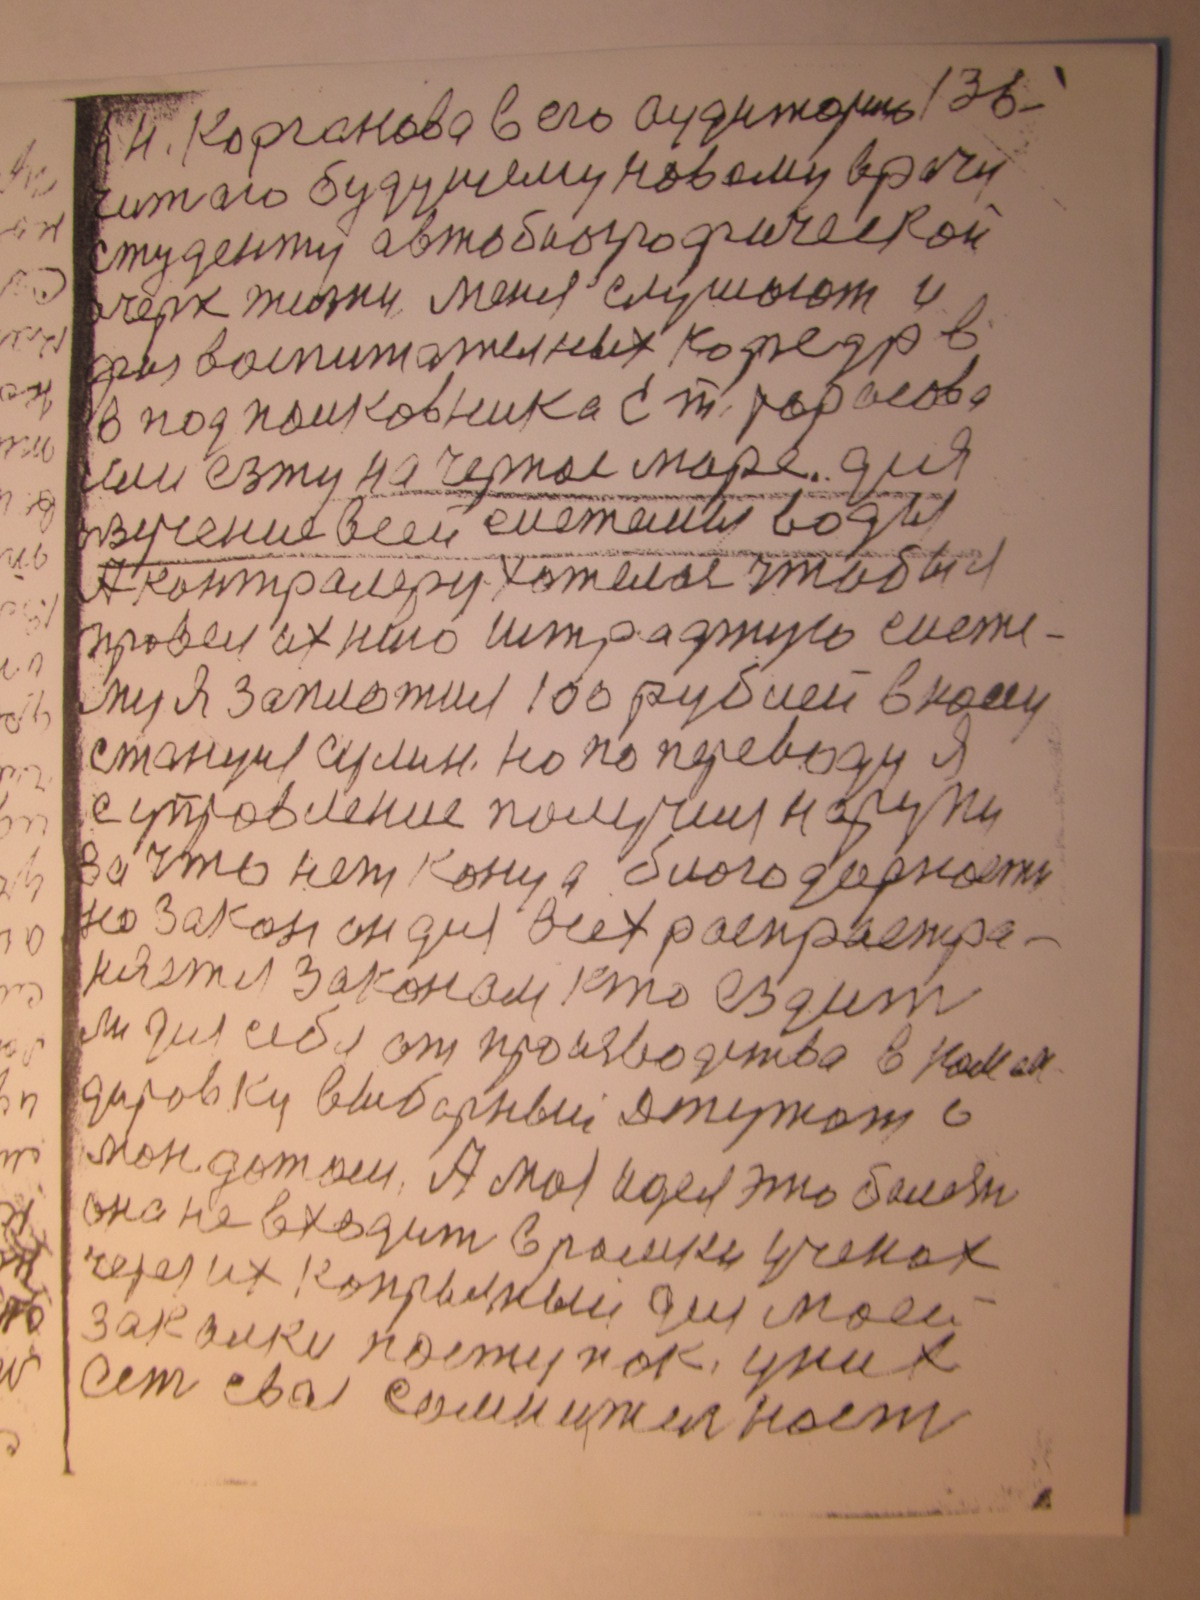 Н. Корганова в его аудиторию 136-
читаю будущему новому врачу
студенту автобиографической
очерк жизни меня слушают и
физ воспитательных кафедр в
в подполковника С т. Тарасова
или езжу на черное море. для
изучение всей системы воды
А контралеру хотелось чтобы я
провел ихнию штрафную систе-
му я заплатил 100 рублей в кассу
станция Сулин. но по переводу я
с управление получил на руки
за что нет конца благодарности
но закон он для всех распрастра-
няется законам кто ездит
ли для себя от производства в коман-
дировку выборный депутат с
мондатом. А моя идея это болезн
она не входит в рамки ученах
через их капрызный для моей
закалки поступок. у них
сет своя сомнительност